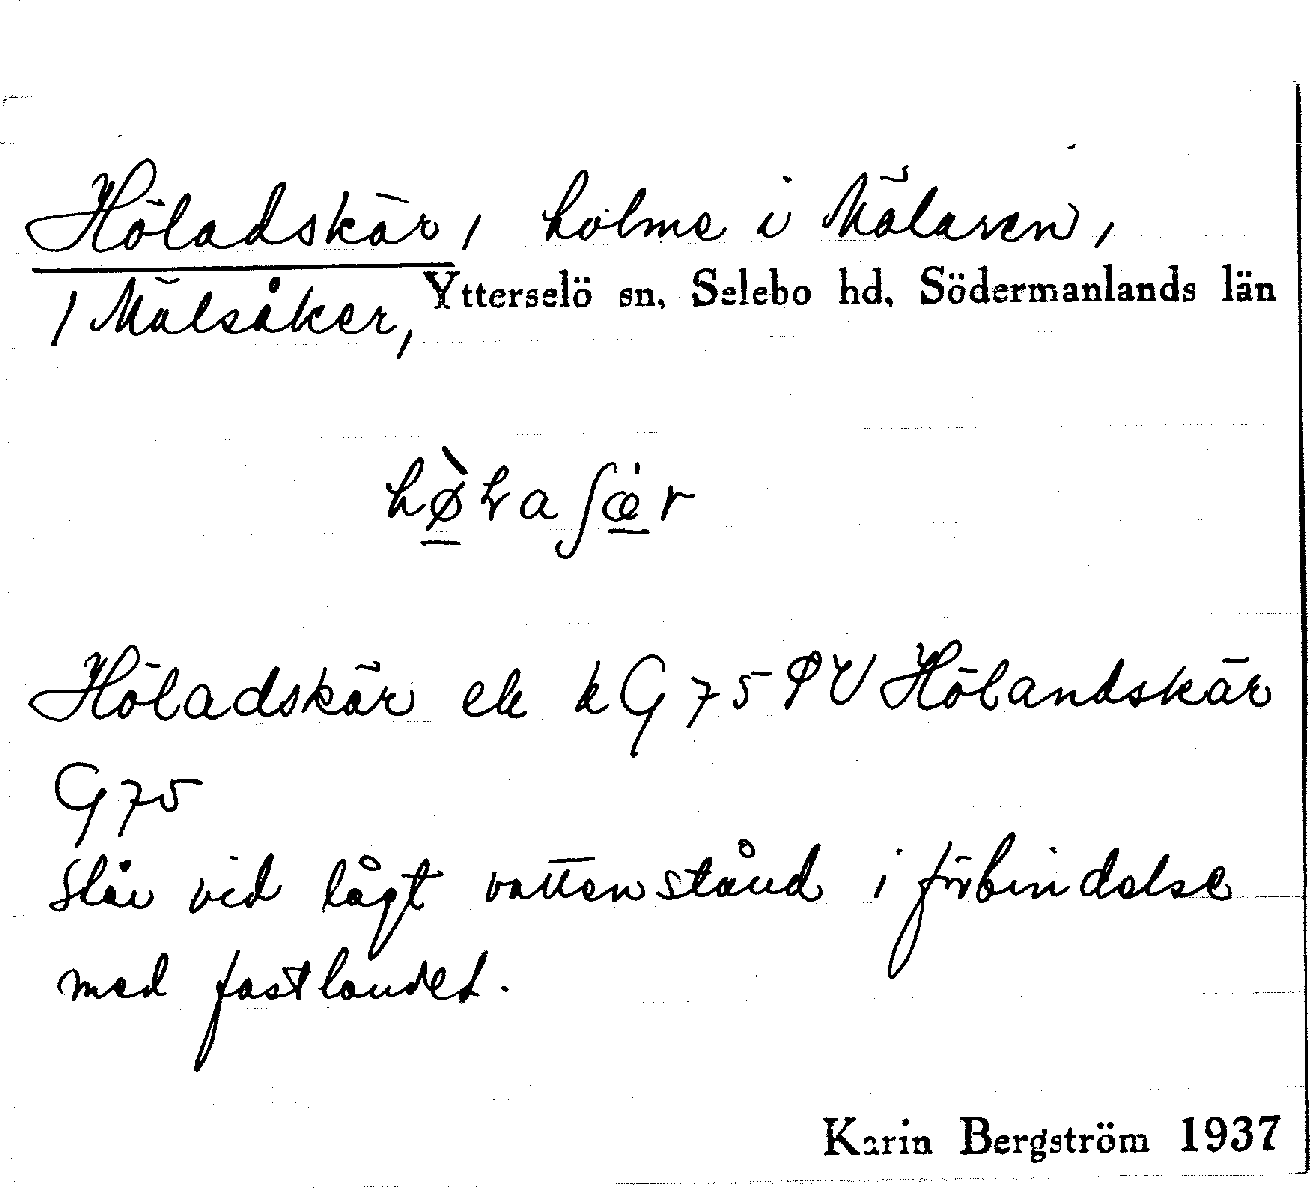 Höladskär, holme i Mälaren,
/ Mälsåker, Ytterselö sn, Selebo hd, Södermanlands län
Höladskär ek kG 75 Hölandskär
G75
Står vid lågt vattenstånd i förbindelse
med fastlandet.
Karin Bergström 1937